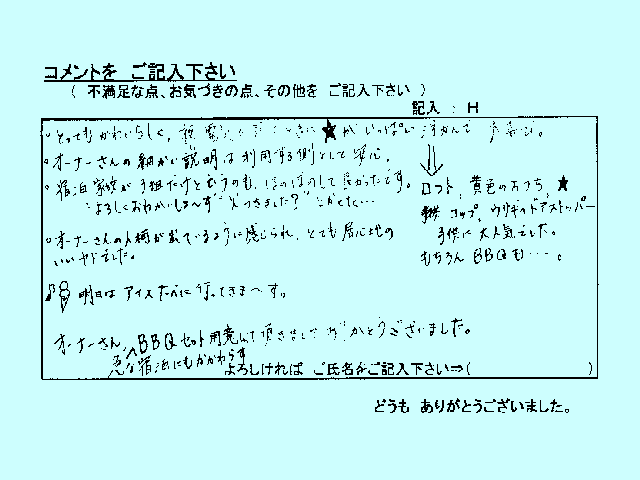 コメントを ご記入下さい
( 不満足な点、お気づきの点、その他を ご記入下さい )
記入 : H
・とってもかわいらしく、
★がいっぱい浮かんで
・オーナーさんの細かい説明は利用する側として安心。
・宿泊家族が3組だけというのも、ほのぼのして良かったです。
"よろしくおねがいしま〜す"
・オーナーさんの人柄が出ているように感じられ、とても居心地の
いいヤドでした。
ロフト、黄色のおうち、★
子供 コップ、ウサギのドアストッパー
子供に大人気でした。
もちろん BBQも・・・。
明日はアイスたべに行ってきま〜す。
オーナーさん、BBQセット用意して頂きまして ありがとうございました。
急な宿泊にもかかわらず
よろしければ ご氏名をご記入下さい⇒( )
どうも ありがとうございました。